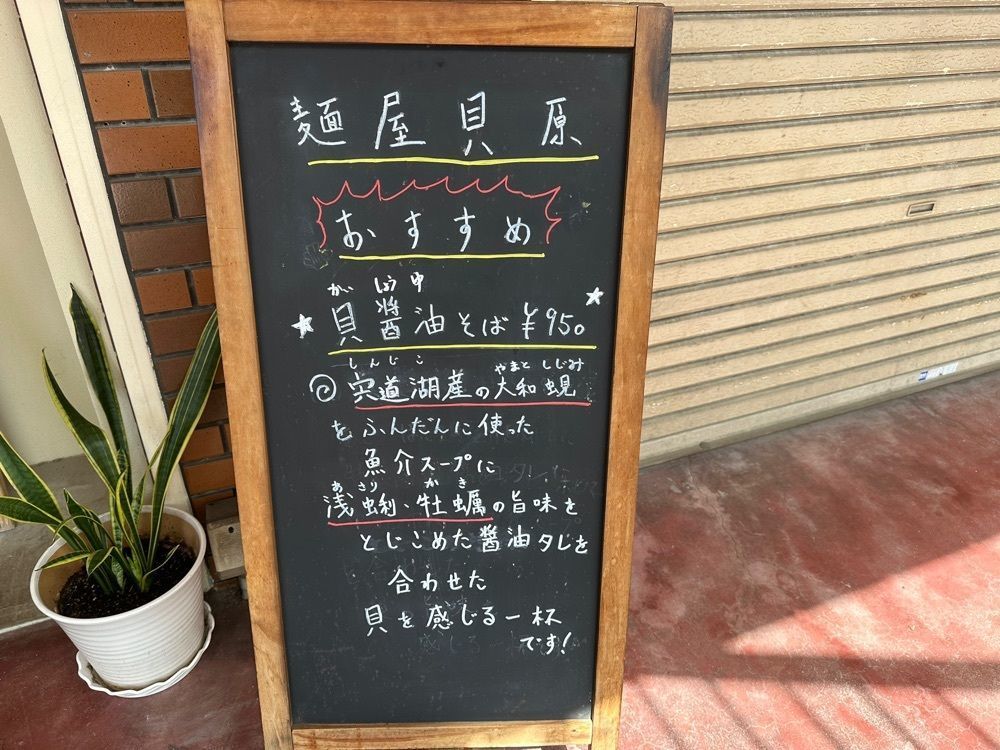 麺屋 貝原
おすすめ
がしょうゆ
貝醤油そば ¥950
しんじこ やまとしじみ
宍道湖産の大和蜆
をふんだんに使った
魚介スープに
あさり かき
浅蜊・牡蠣の旨味を
とじこめた醤油タレを
合わせた
貝を感じる一杯
です!